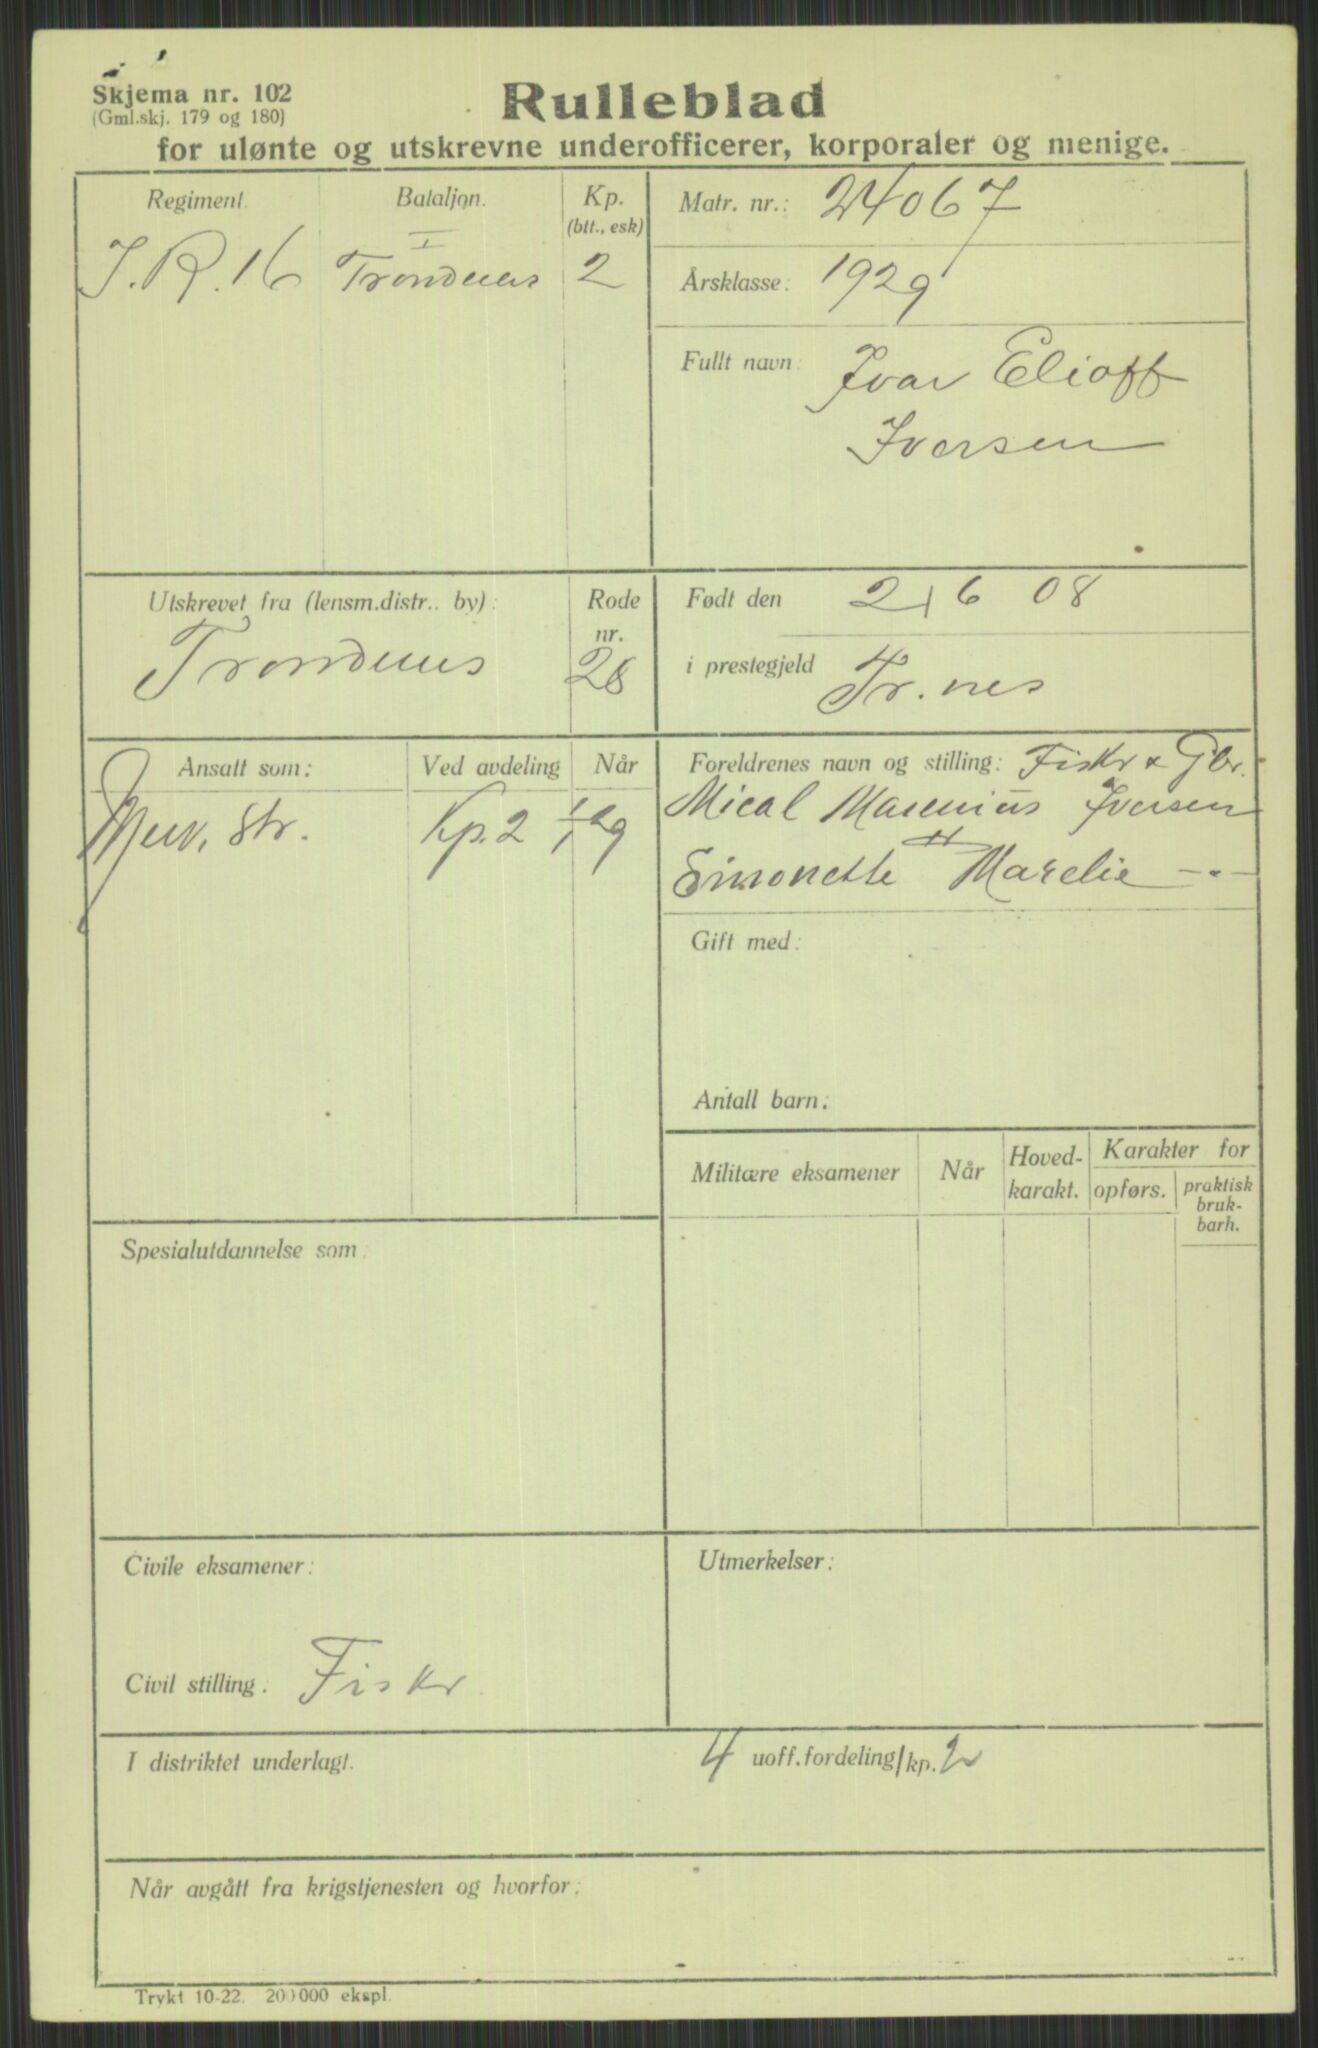 Skjema nr. 102
(Gml.skj. 179 og 180)
Rulleblad
for ulønte og utskrevne underofficerer, korporaler og menige.
Regiment.
Bataljon.
Kp.
(btt., esk)
J.R.16
I
Trondenes
2
Matr. nr.: 24067
Årsklasse: 1929
Fullt navn: Ivar Elioff
Iversen
Utskrevet fra (lensm.distr.. by):
Trondenes
Rode
nr.
28
Født den 2/6 08
i prestegjeld Tr.nes
Ansatt som:
Ved avdeling
Når
Menv. str.
Kp.2
1/1 29
Foreldrenes navn og stilling: Fiskr & Gbr.
Mical Marenius Iversen
Simonette Marelie -"-
Gift med:
Antall barn:
Militære eksamener
Når
Hoved-
karakt.
Karakter for
opførs.
praktisk
bruk-
barh.
Spesialutdannelse som:
Civile eksamener:
Utmerkelser:
Civil stilling: Fiskr.
I distriktet underlagt.
4 uoff.fordeling/kp. 2
Når avgått fra krigstjenesten og hvorfor:
Trykt 10-22. 200000 ekspl.